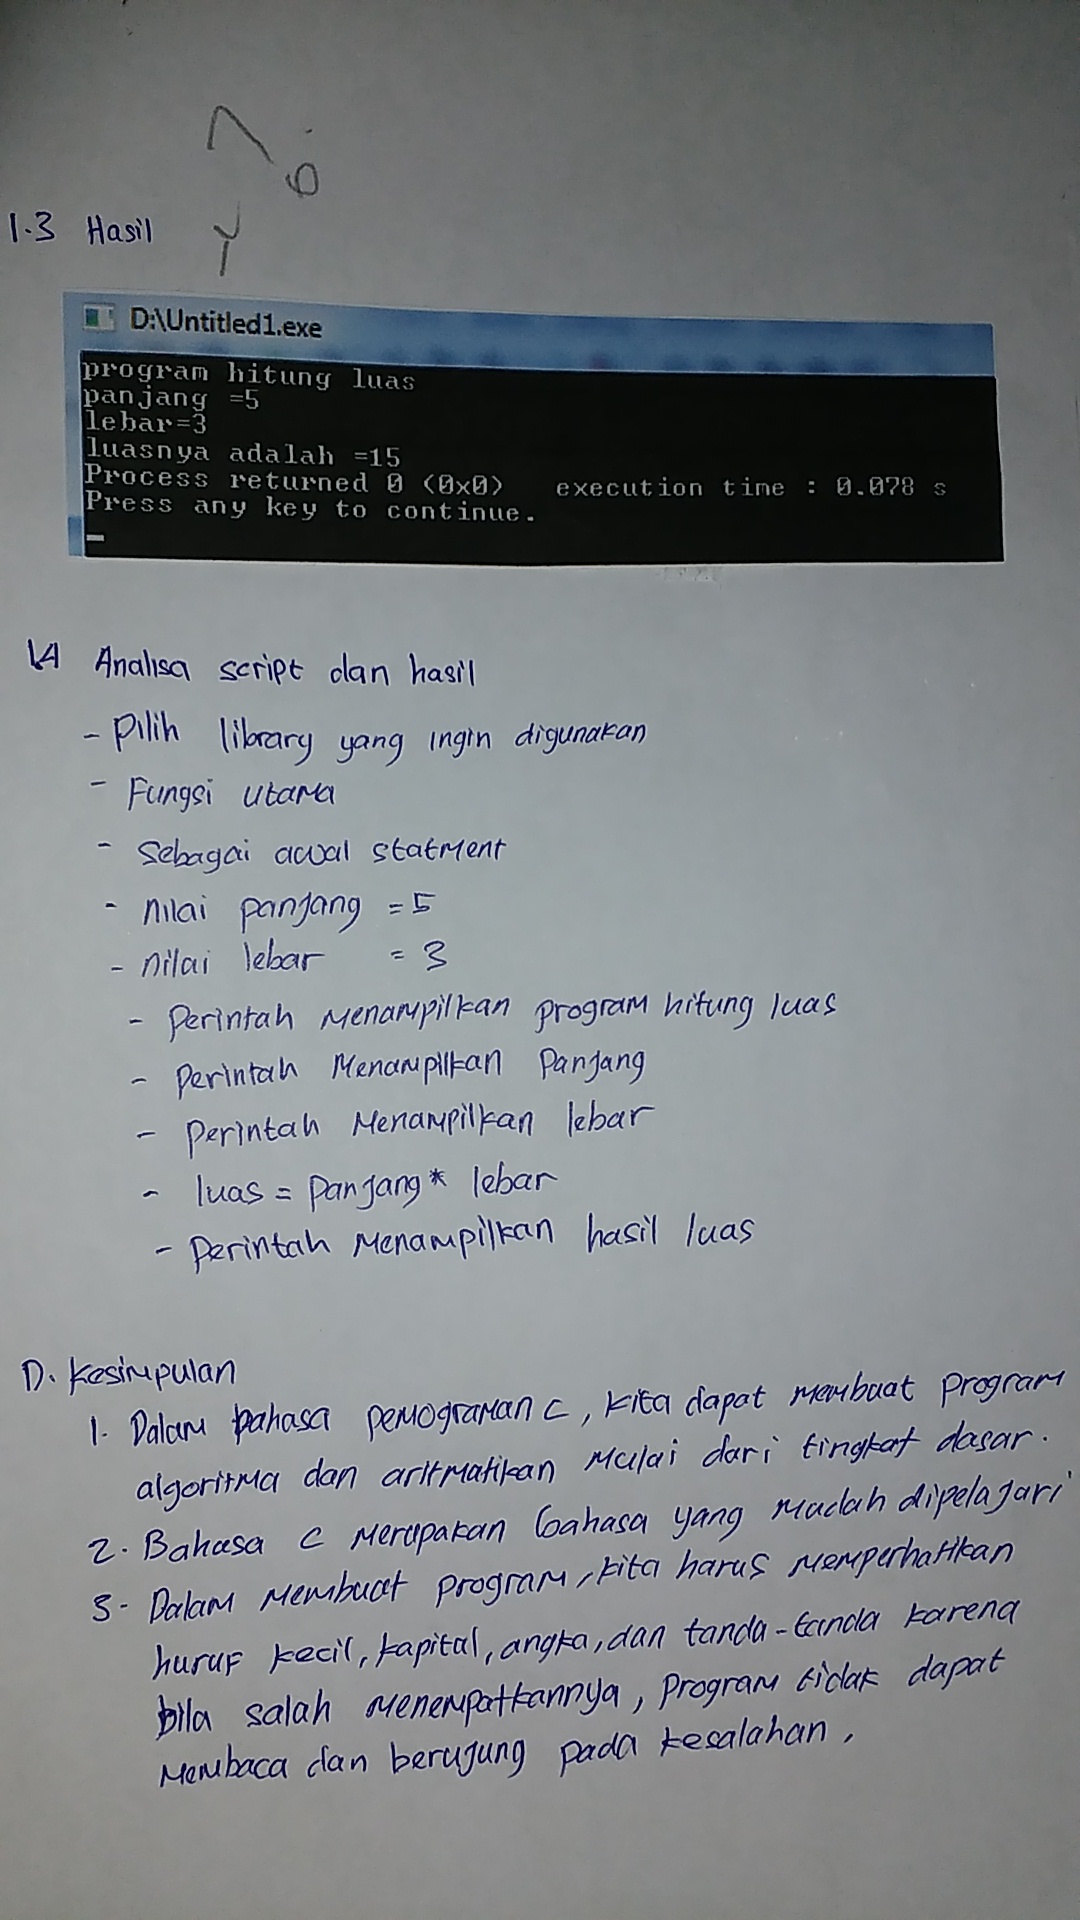 1.3 Hasil
D:\Untitled1.exe
program hitung luas
panjang =5
lebar=3
luasnya adalah =15
Process returned 0 (0x0)   execution time : 0.078 s
Press any key to continue.
1.4 Analisa script dan hasil
- Pilih library yang ingin digunakan
- Fungsi utama
- Sebagai awal statment
- nilai panjang = 5
- nilai lebar = 3
- Perintah menampilkan program hitung luas
- Perintah menampilkan Panjang
- Perintah menampilkan lebar
- luas = Panjang * lebar
- Perintah menampilkan hasil luas
D. Kesimpulan
1. Dalam bahasa pemograman C, kita dapat membuat program
algoritma dan aritmatikan mulai dari tingkat dasar.
2. Bahasa C merupakan bahasa yang mudah dipelajari
3- Dalam membuat program, kita harus memperhatikan
huruf kecil, kapital, angka, dan tanda-tanda karena
bila salah menempatkannya, Program tidak dapat
membaca dan berujung pada kesalahan.